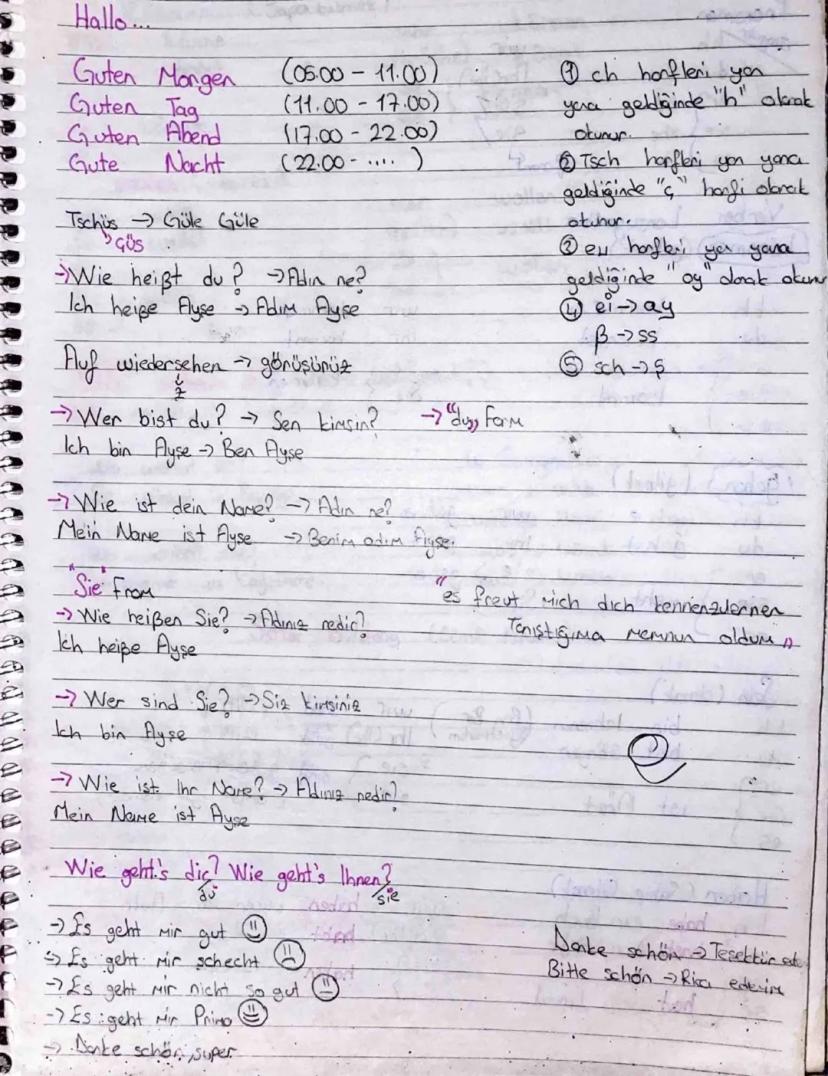 Hallo...
Guten Morgen (05.00 - 11.00)
Guten Tag (11.00 - 17.00)
Guten Abend (17.00 - 22.00)
Gute Nacht (22.00 - .... )
① ch harfleri yan
yana geldiğinde "h" olarak
okunur.
② Tsch harfleri yan yana
geldiğinde "ç" harfi olarak
okunur.
② eu harfleri yan yana
geldiğinde "oy" olarak okunur
④ ei → ay
β → ss
⑤ sch → ş
Tschüs → Güle Güle
↳ çüs
→ Wie heißt du? → Adın ne?
Ich heiße Ayşe → Adım Ayşe
Auf wiedersehen → görüşürüz
↓
z
→ Wer bist du? → Sen kimsin? → "du" form
Ich bin Ayşe → Ben Ayşe
→ Wie ist dein Name? → Adın ne?
Mein Name ist Ayşe → Benim adım Ayşe.
"Sie" from
→ Wie heißen Sie? → Adınız nedir?
Ich heiße Ayşe
"es freut mich dich kennenzulernen
Tanıştığıma memnun oldum"
→ Wer sind Sie? → Siz kimsiniz
Ich bin Ayşe
→ Wie ist Ihr Name? → Adınız nedir?
Mein Name ist Ayşe
Wie geht's dir? Wie geht's Ihnen?
du sie
→ Es geht mir gut
→ Es geht mir schecht
→ Es geht mir nicht so gut
→ Es geht mir Prima
→ Danke schön, super
Danke schön → Teşekkür ede
Bitte schön → Rica ederim